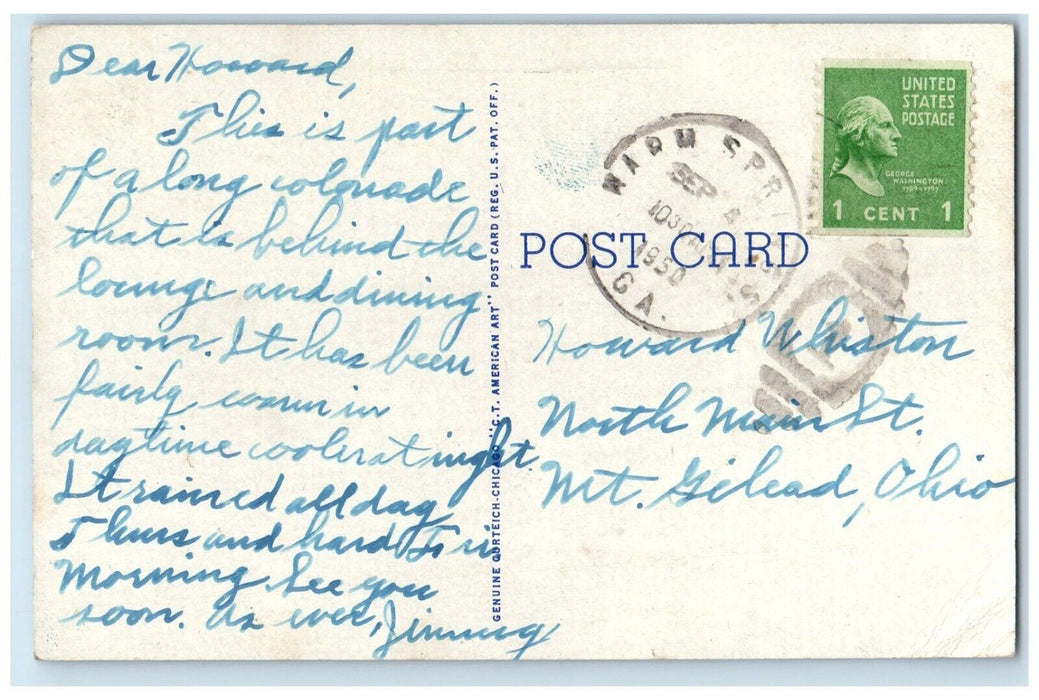 Dear Howard,
This is part
of a long colonade
that is behind the
lounge and dining
room. It has been
fairly warm in
daytime cooler at night.
It rained all day
Thurs and hard Fri
Morning. See you
soon. As ever, Jimmy
GENUINE CURTEICH-CHICAGO "C.T. AMERICAN ART" POST CARD (REG. U.S. PAT. OFF.)
WARM SPRI
SEP
1030AM
1950
GA.
UNITED
STATES
POSTAGE
GEORGE
WASHINGTON
1789-1797
1 CENT 1
POST CARD
Howard Whiston
North Main St.
Mt. Gilead, Ohio